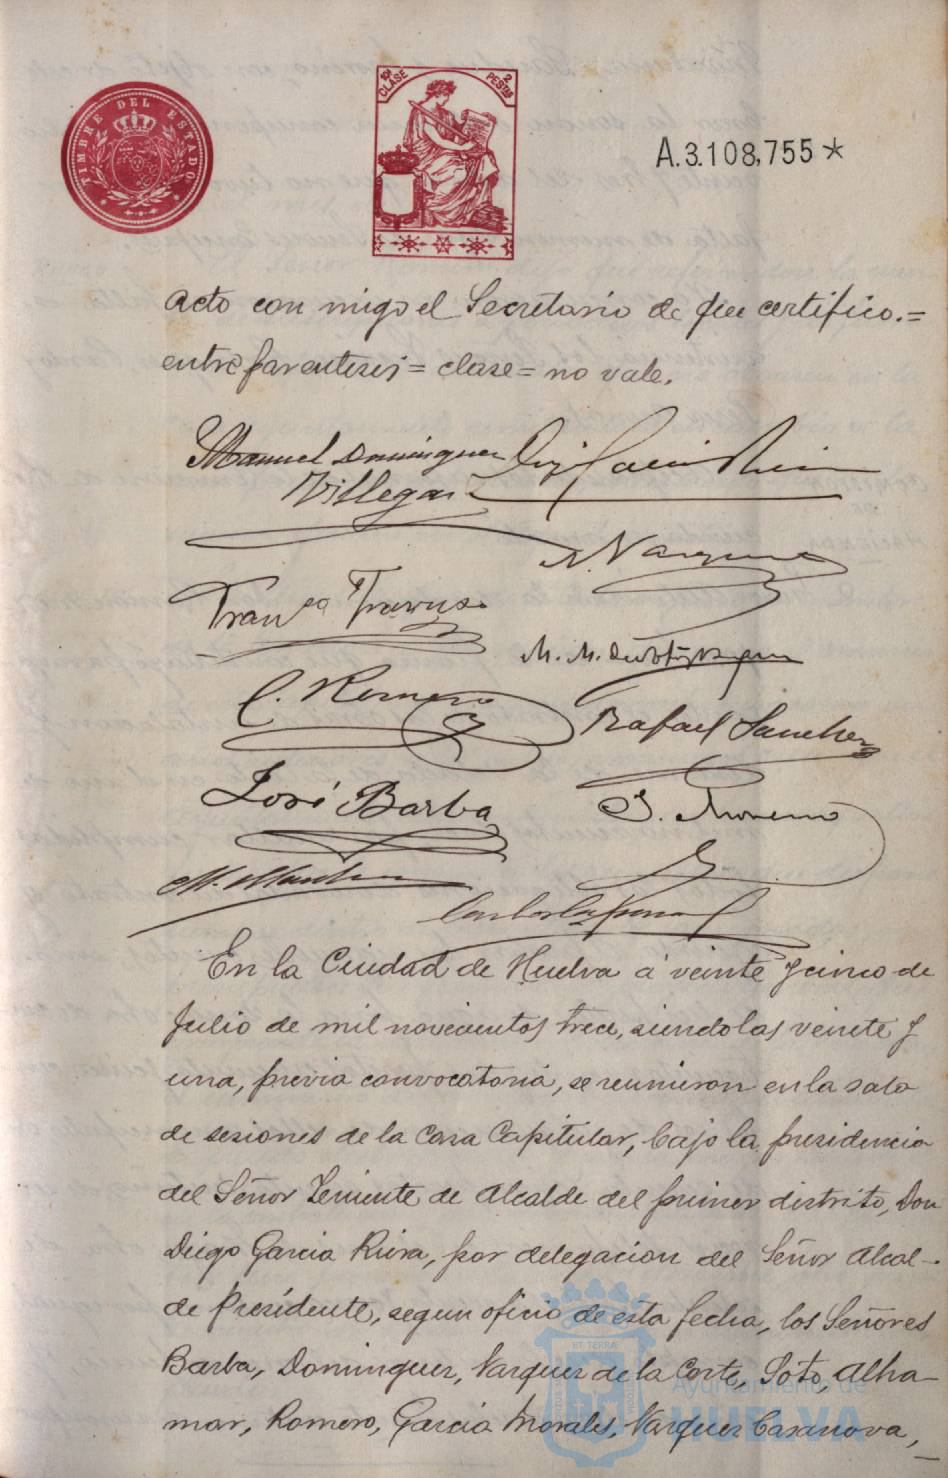 TIMBRE DEL ESTADO
10ª CLASE
2 PESTAS
A.3.108,755*
acto con migo el Secretario de que certifico.=
entre parentesis = clase = no vale.
Manuel Dominguez
Villegas
N. Vazquez
Franco
M. M. de
C. Romero
Rafael Sanchez
José Barba
J. Moreno
M.
En la Ciudad de Huelva á veinte y cinco de
Julio de mil novecientos trece, siendo las veinte y
una, previa convocatoria, se reunieron en la sala
de sesiones de la Casa Capitular, bajo la presidencia
del Señor Teniente de Alcalde del primer distrito, Don
Diego Garcia Riera, por delegacion del Señor Alcal-
de Presidente, segun oficio de esta fecha, los Señores
Barba, Dominguez, Vazquez de la Corte, Soto, Alha-
mar, Romero, Garcia Morales, Vazquez Casanova,
Ayuntamiento de
HUELVA